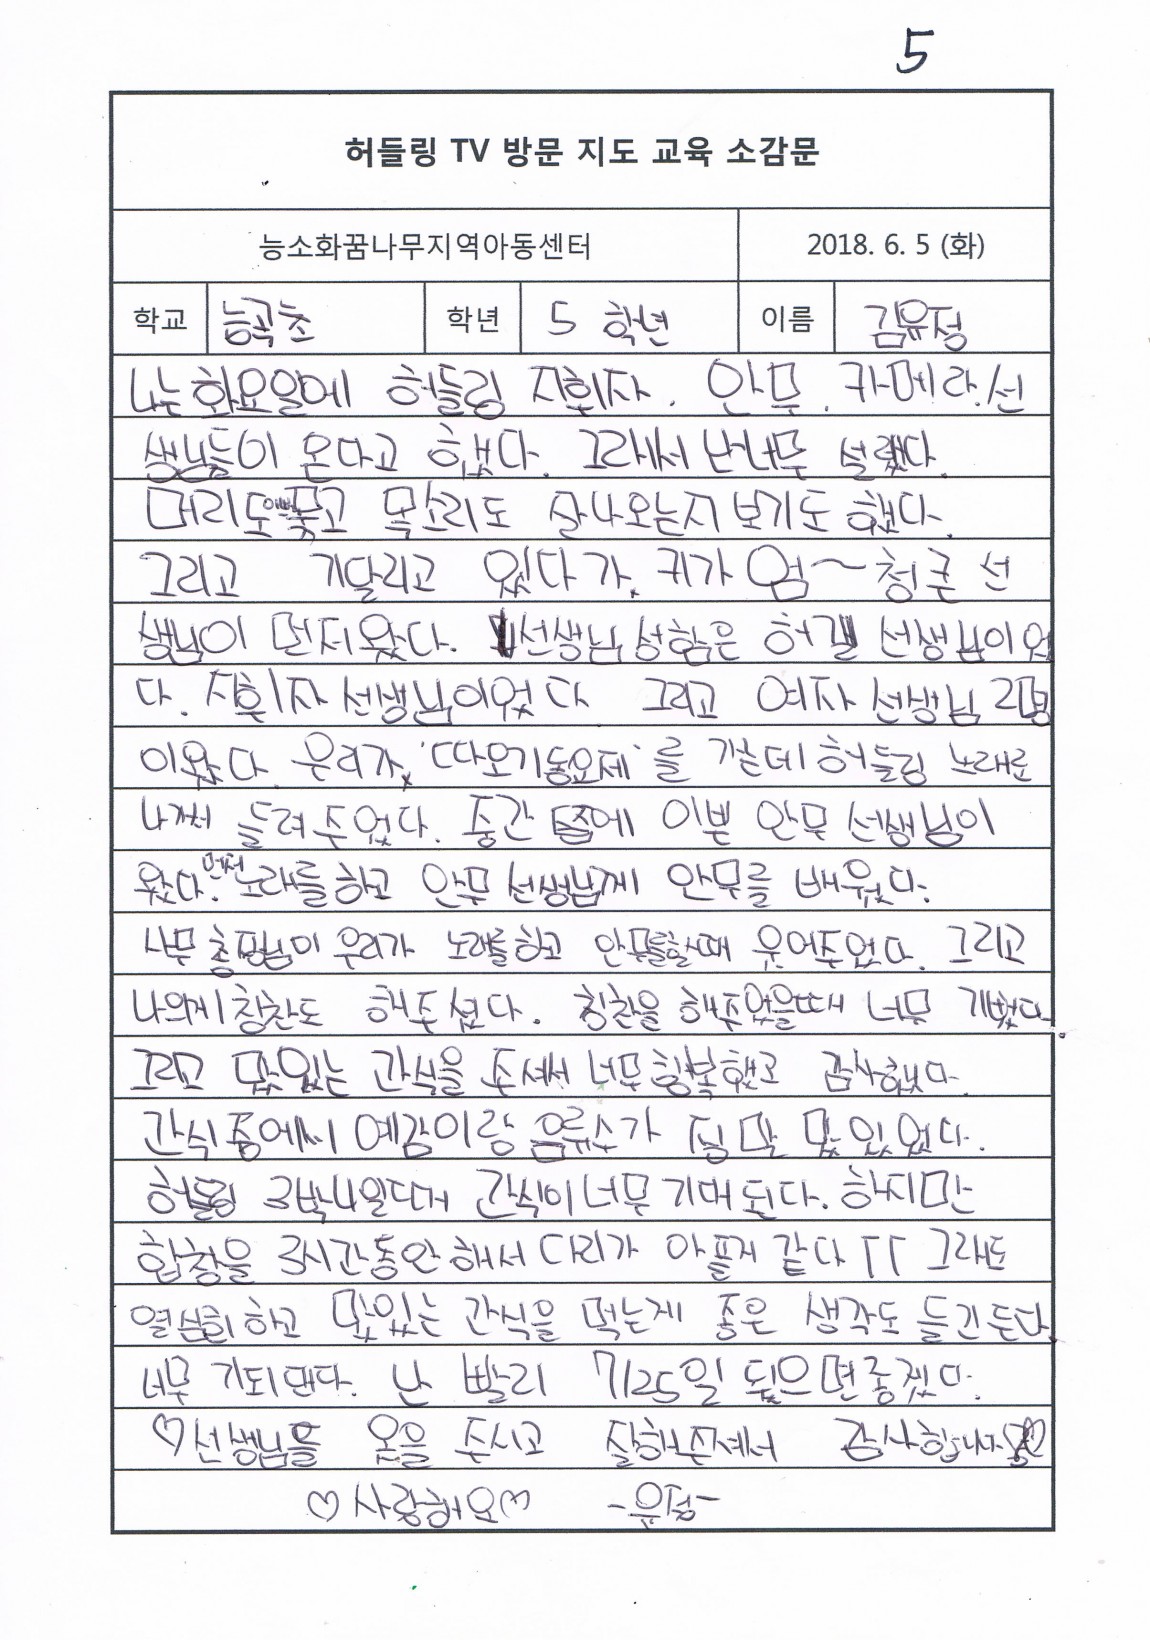 5
허들링 TV 방문 지도 교육 소감문
능소화꿈나무지역아동센터 2018. 6. 5 (화)
학교 능곡초 학년 5 학년 이름 김유정
나는 화요일에 허들링 지휘자. 안무. 카메라.선
생님들이 온다고 했다. 그래서 난너무 설렜다.
머리도 예쁘게 묶고 목소리도 잘나오는지 보기도 했다.
그리고 기달리고 있다가, 키가 엄~청큰 선
생님이 먼저왔다. 선생님 성함은 허걸 선생님이었
다. 지휘자 선생님이었다 그리고 여자 선생님 2명
이왔다. 우리가, '따오기동요제'를 가는데 허들링 노래로
나가서 들려주었다. 중간 쯤에 이쁜 안무 선생님이
왔다. 먼저 노래를 하고 안무선생님께 안무를 배웠다.
사무총장님이 우리가 노래를하고 안무를할때 웃어주었다. 그리고
나에게 칭찬도 해주셨다. 칭찬을 해주었을때 너무 기뻤다.
그리고 맜있는 간식을 주셔서 너무 행복했고 감사했다.
간식중에서 예감이랑 음류수가 정말 맜있었다.
허들링 3박4일때 간식이너무 기대된다. 하지만
합창을 3시간동안 해서 다리가 아플거 같다 ㅜㅜ 그래도
열심히 하고 맜있는 간식을 먹는게 좋은 생각도 들긴든다.
너무 기되댄다. 난 빨리 7/25일 됬으면좋겠다.
♡선생님들 옷을 주시고 잘해주셔서 감사합니다♡
♡사랑해요♡ -유정-